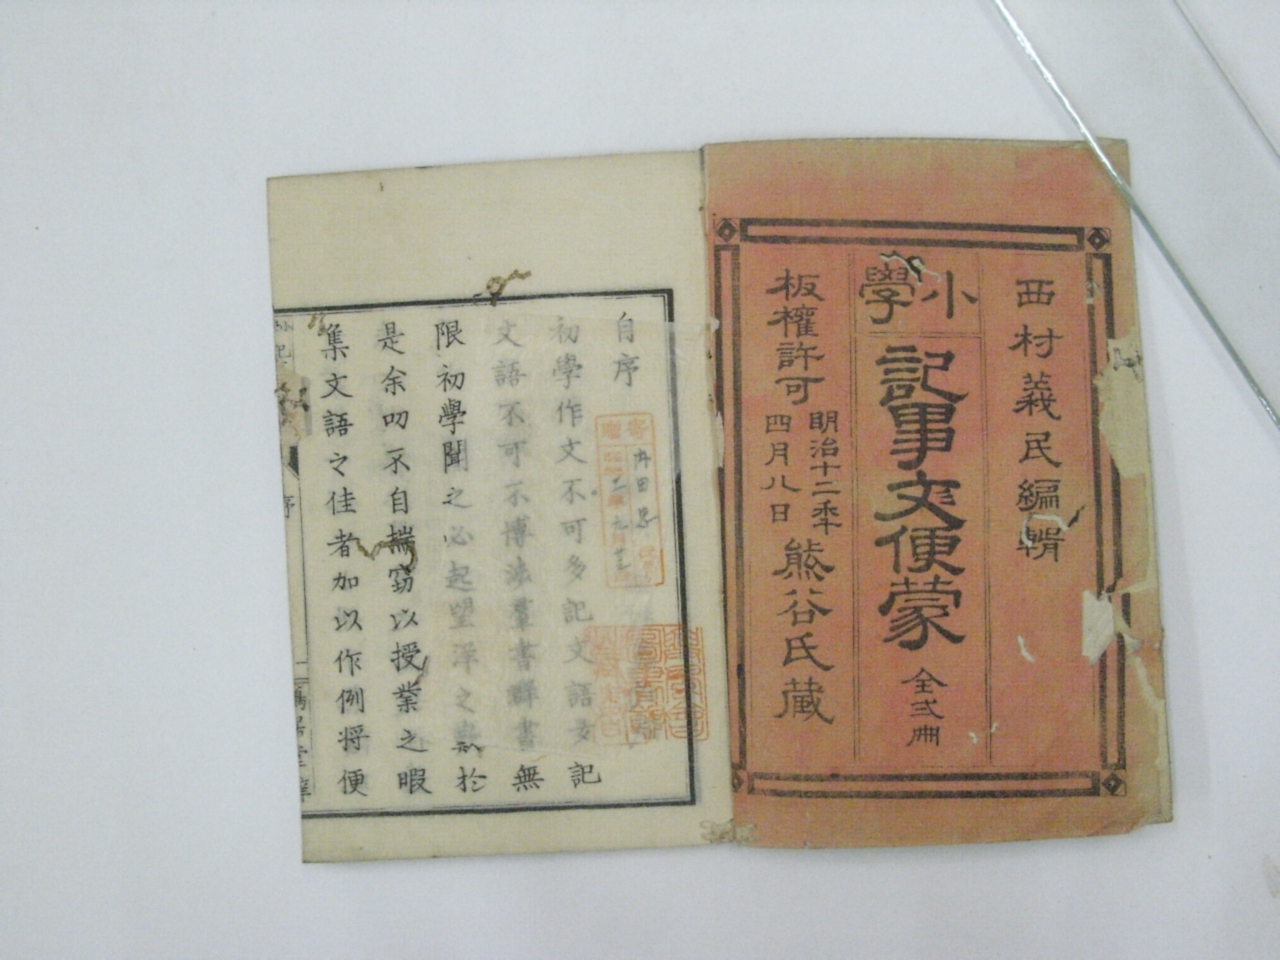 西村義民編輯
小學
記事文便蒙
全弍冊
板權許可
明治十二年
四月八日
熊谷氏蔵
自序
初學作文不可多記文語
記
文語不可不博法羣書群書無
限初學聞之必起望洋之歎於
是余叨不自揣窃以授業之暇
集文語之佳者加以作例将便
序